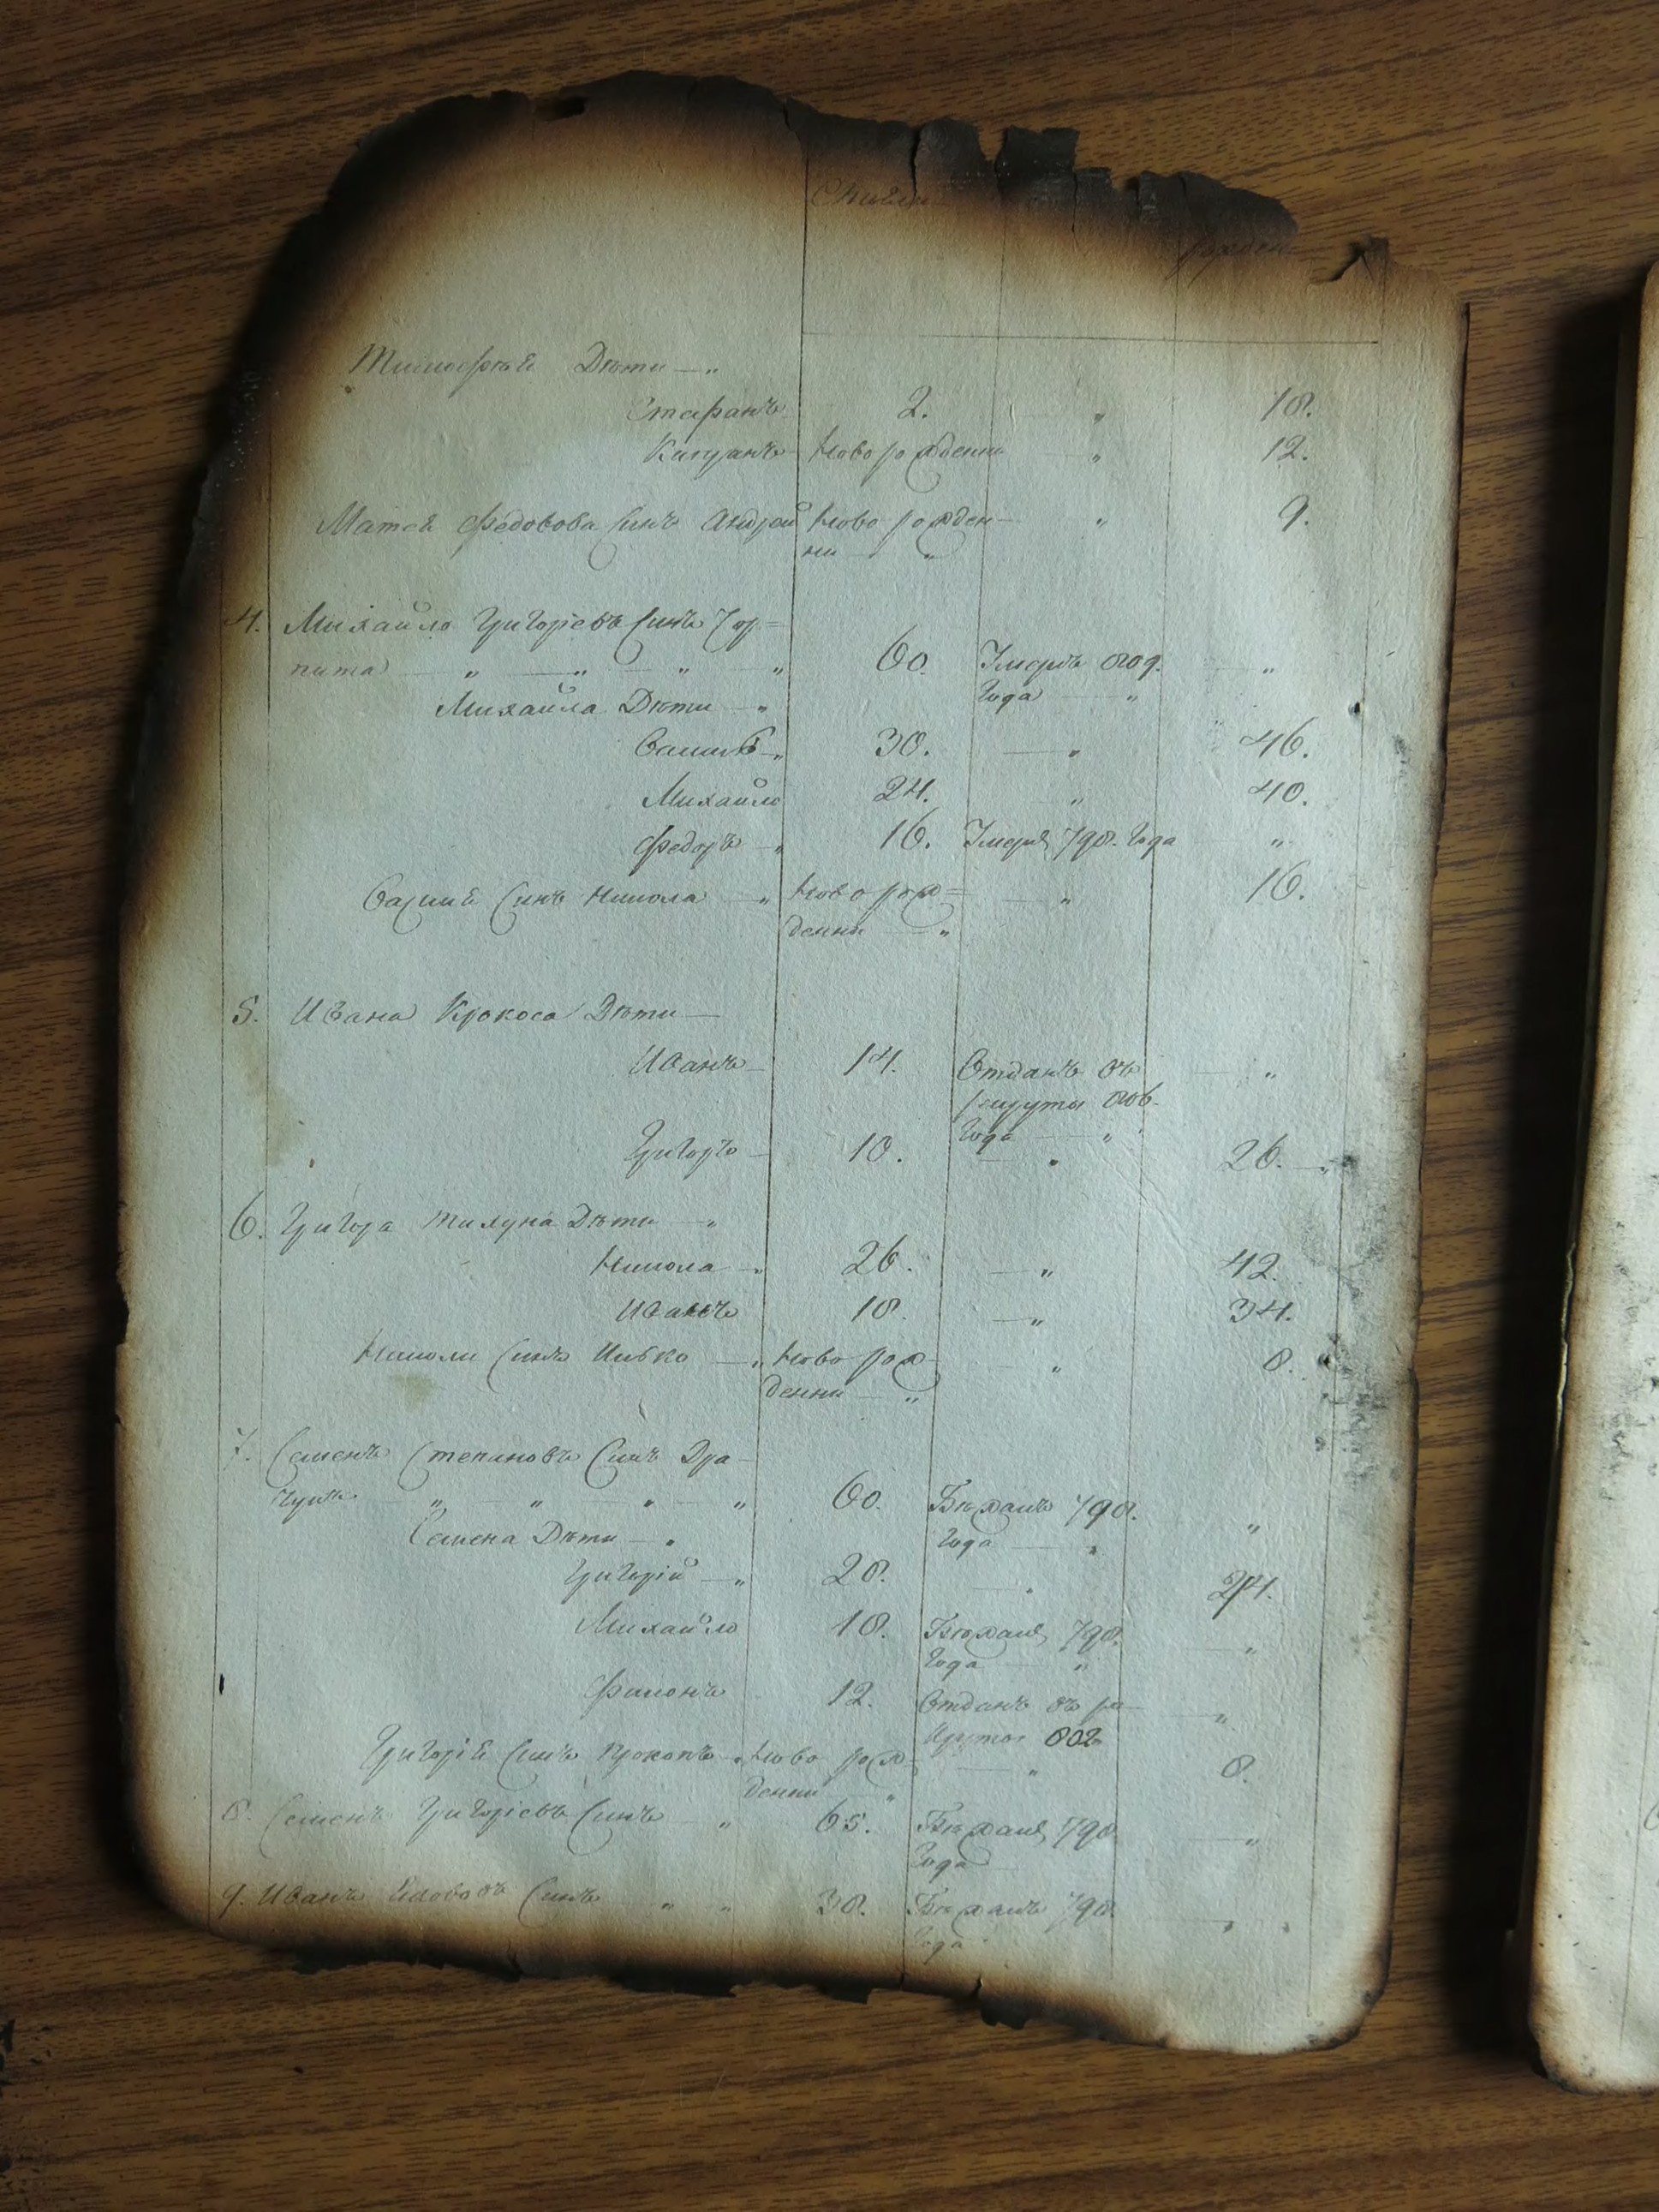 Тимофѣй Дѣти — „
Стефанъ 2. „ 18.
Киприанъ Ново рожденни „ 12.
Матей Федорова Синъ Андрей Ново рожден- „ 9.
ни „
4. Михайло Григориевъ Синъ
„ „ „ „ 60. Умеръ 809. „
Года „
Михайла Дѣти „
Василь „ 30. „ 46.
Михайло 24. „ 40.
Федоръ „ 16. Умеръ 798. Года „
Василий Синъ Никола „ Ново рож= „ 16.
денни „
5. Ивана Крокоса Дѣти —
Иванъ 14. Отданъ въ „
рекруты 806.
Года „
Григоръ 10. „ 26. „
6. Григора Дѣти „
Никола „ 26. „ 42.
Иванъ 18. „ 34.
Николи Синъ Ивко „ Ново рож- „ 8.
денни „
7. Семенъ Степановъ Синъ Дра-
„ „ „ „ 60. Бѣжалъ 798. „
Семена Дѣти „ Года „
Григорій „ 28. „ 24.
Михайло 18. Бѣжалъ 798. „
Года „
Филонъ 12. Отданъ въ ре- „
круты 802
Григорій Синъ Прокопъ „ Ново рож- „ 8.
денни „
8. Семенъ Григоріевъ Синъ „ 65. Бѣжалъ 798 „
Года
9. Иванъ Синъ „ „ 38. Бѣжалъ 798. „ „
Года